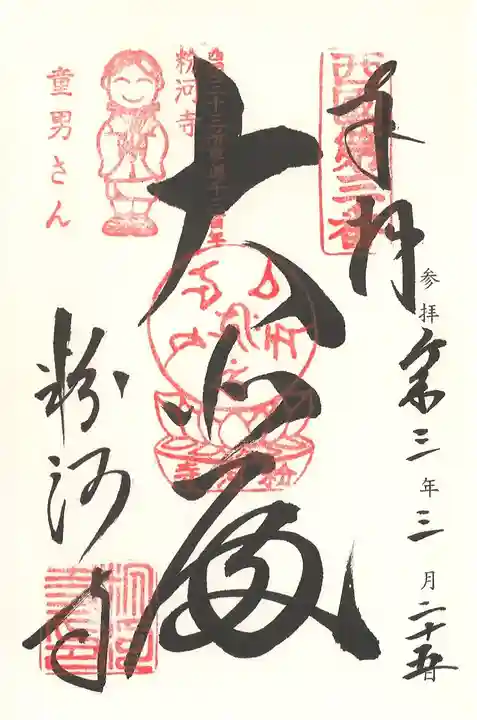 奉拝
西國第三番
参拝 令和三年三月二十五日
大悲殿
西国三十三所草創千三百年
粉河寺
粉河寺
童男さん
粉河寺